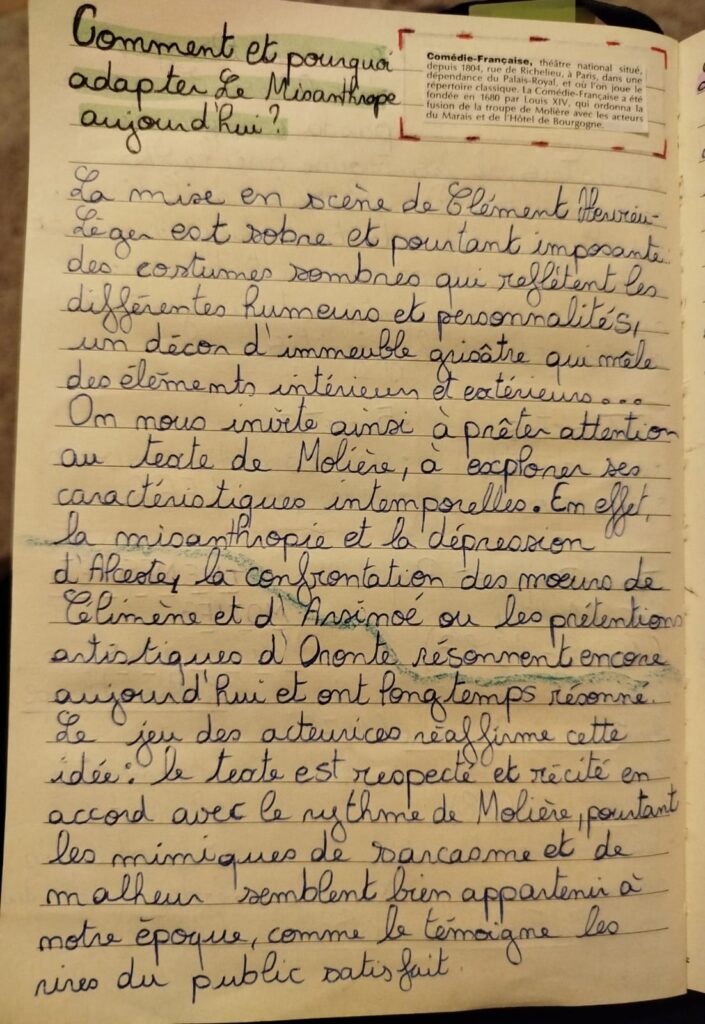 Comment et pourquoi
adapter Le Misanthrope
aujourd'hui ?
Comédie-Française, théâtre national situé,
depuis 1804, rue de Richelieu, à Paris, dans une
dépendance du Palais-Royal, et où l'on joue le
répertoire classique. La Comédie-Française a été
fondée en 1680 par Louis XIV, qui ordonna la
fusion de la troupe de Molière avec les acteurs
du Marais et de l'Hôtel de Bourgogne.
La mise en scène de Clément Hervieu-
Léger est sobre et pourtant imposante
des costumes sombres qui reflètent les
différentes humeurs et personnalités,
un décor d'immeuble grisâtre qui mêle
des éléments intérieurs et extérieurs...
On nous invite ainsi à prêter attention
au texte de Molière, à explorer ses
caractéristiques intemporelles. En effet,
la misanthropie et la dépression
d'Alceste, la confrontation des mœurs de
Célimène et d'Arsinoé ou les prétentions
artistiques d'Oronte résonnent encore
aujourd'hui et ont longtemps résonné.
Le jeu des acteurices réaffirme cette
idée : le texte est respecté et récité en
accord avec le rythme de Molière, pourtant
les mimiques de sarcasme et de
malheur semblent bien appartenir à
notre époque, comme le témoigne les
rires du public satisfait.